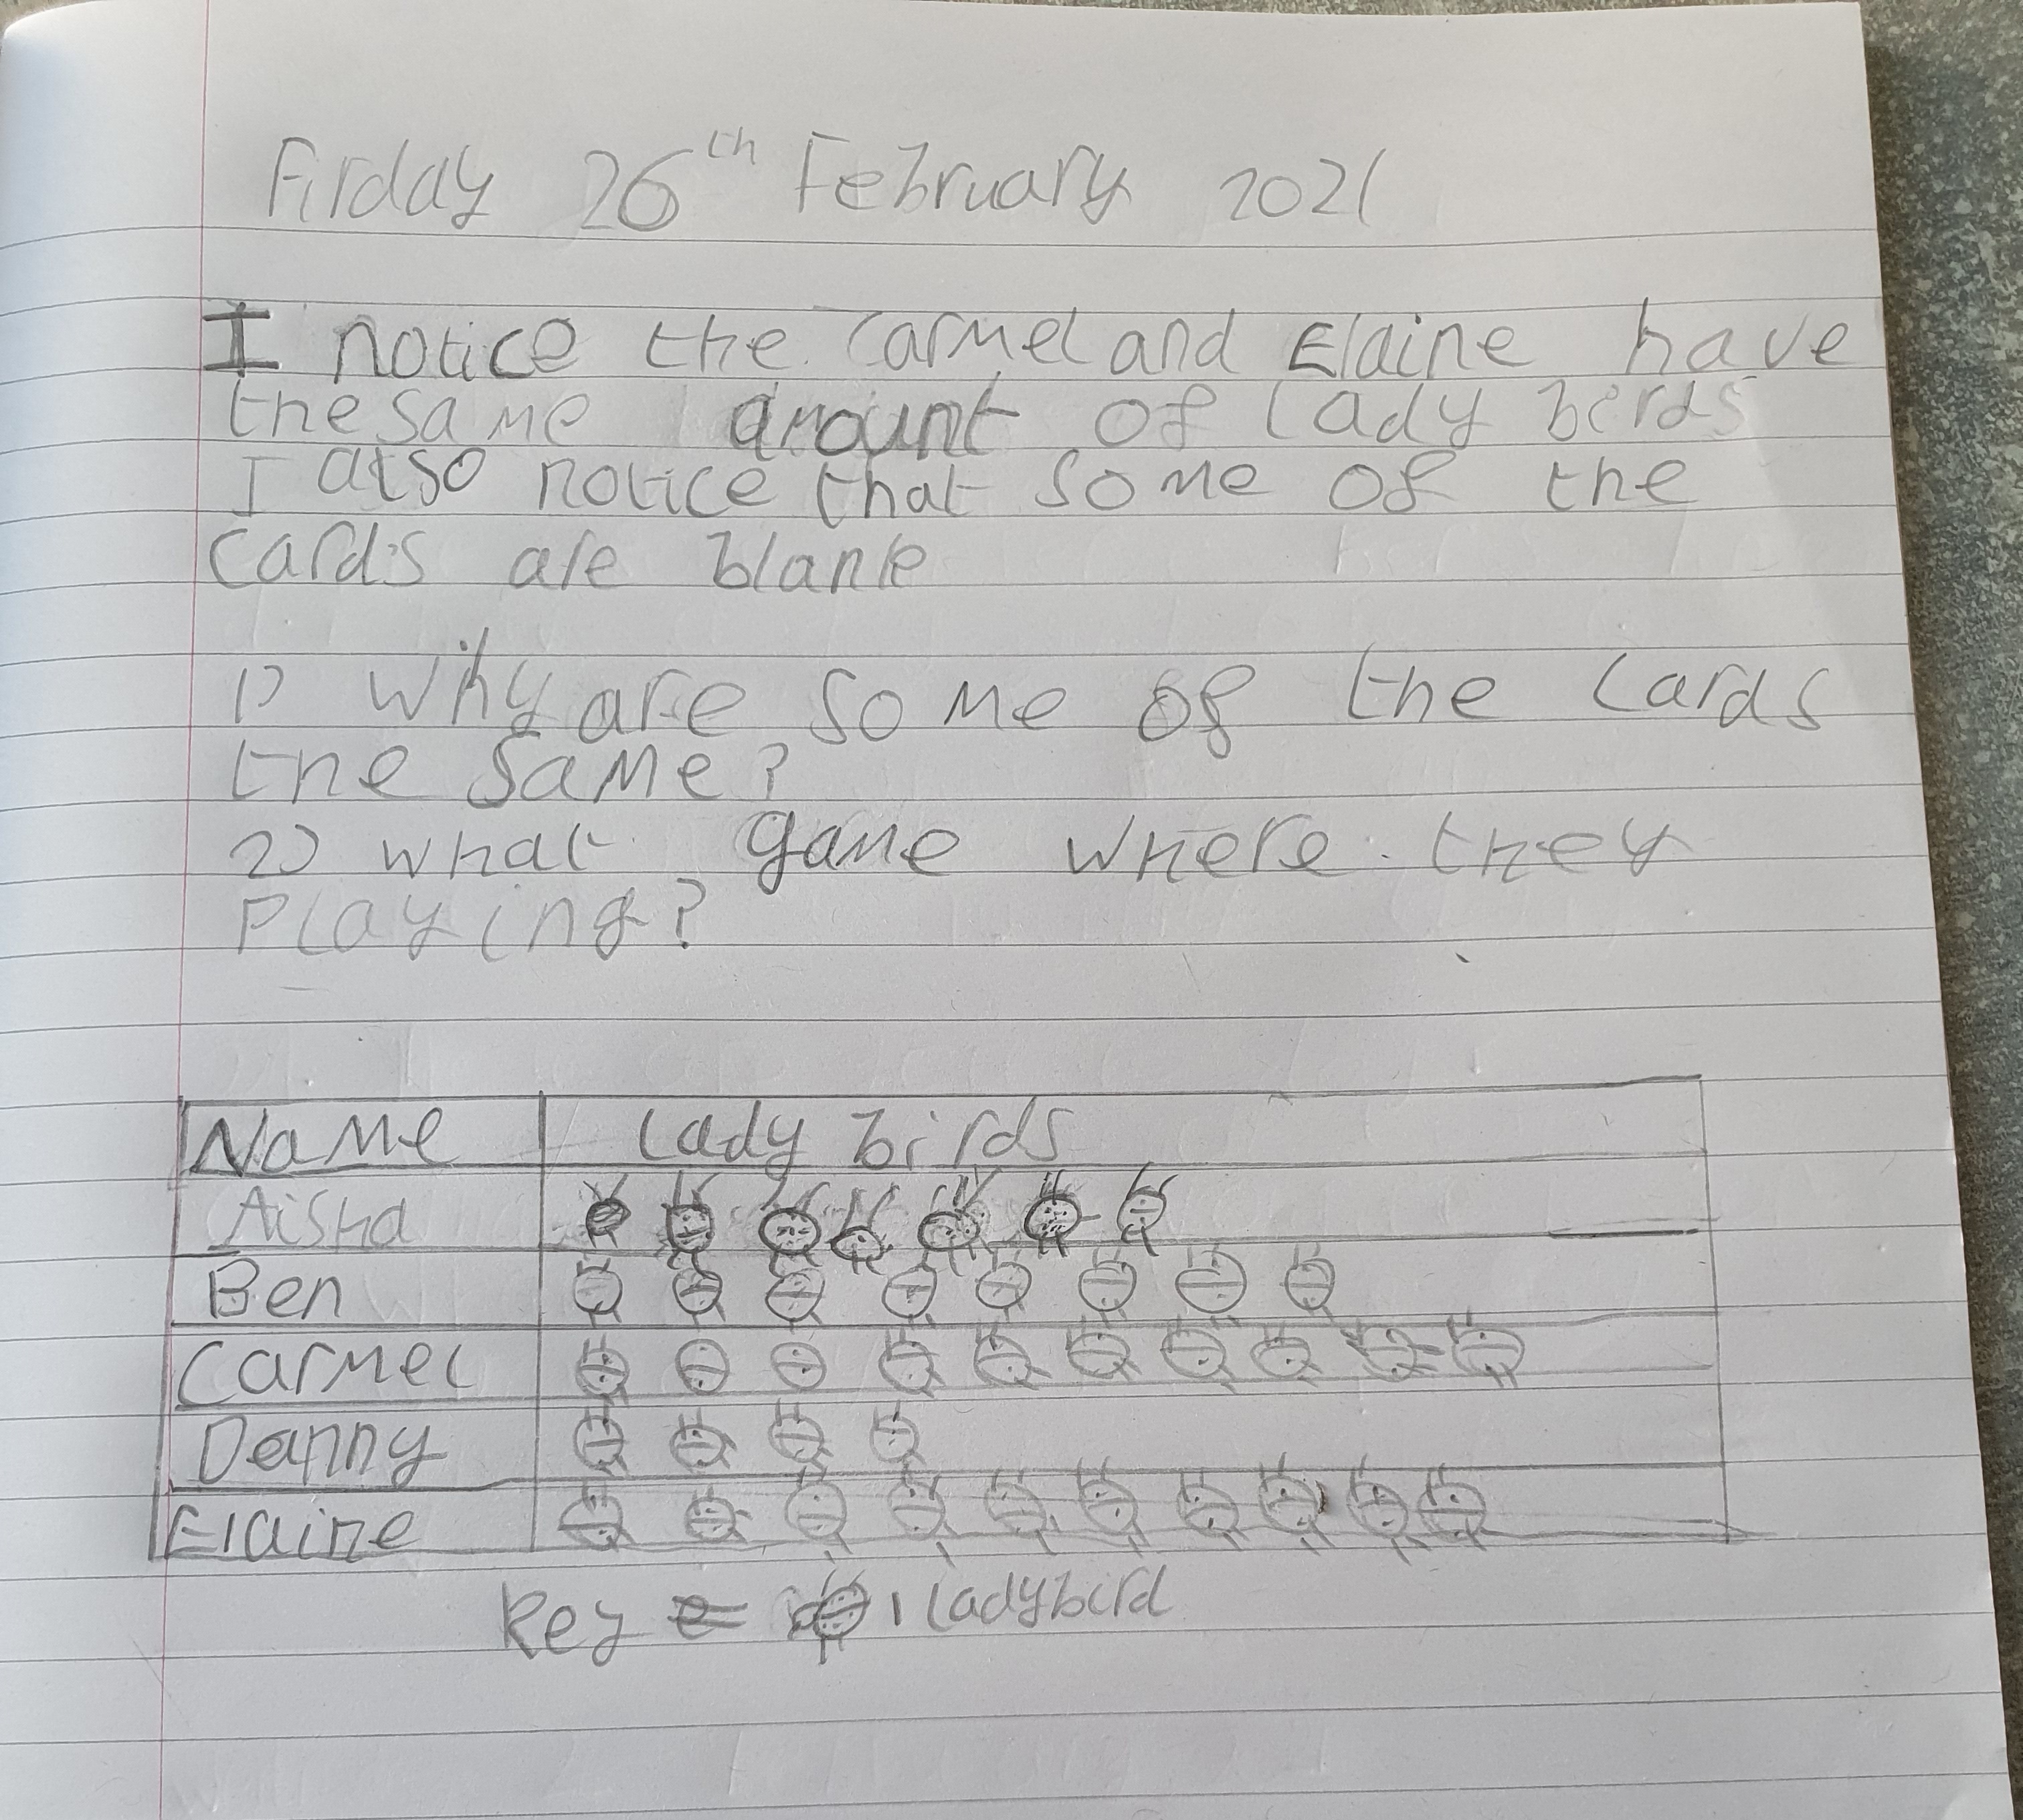 Firday 26th February 2021
I notice the Carmel and Elaine have
the same amount of lady berds
I also notice that some of the
cards are blank
1) Why are some of the cards
the same?
2) what game where they
Playing?
Name lady birds
Aisha
Ben
Carmel
Danny
Elaine
Key = 1 ladybird